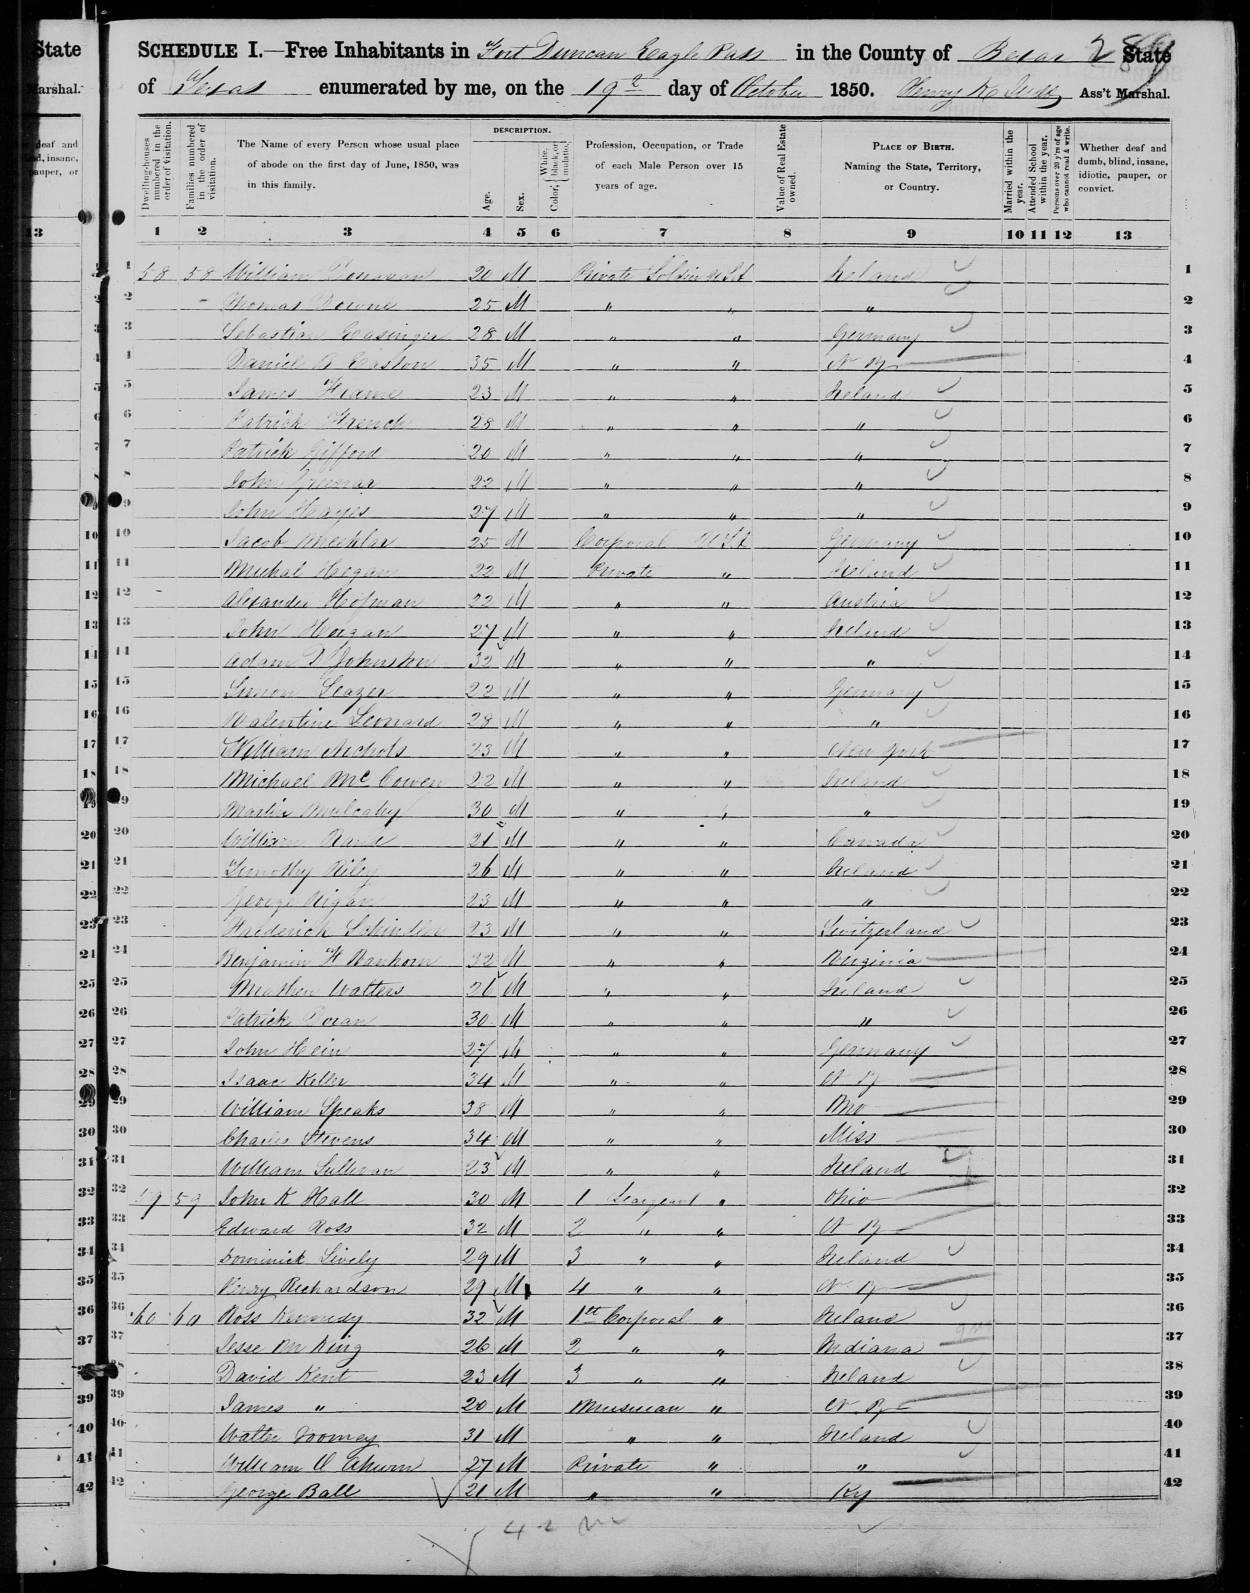 State
Marshal.
SCHEDULE I.—Free Inhabitants in Fort Duncan Eagle Pass in the County of Bexar State
of Texas enumerated by me, on the 19th day of October 1850. Henry K Ass't Marshal.
Dwelling-houses numbered in the order of visitation.
Families numbered in the order of visitation.
The Name of every Person whose usual place of abode on the first day of June, 1850, was in this family.
DESCRIPTION.
Age.
Sex.
Color, White, black, or mulatto.
Profession, Occupation, or Trade of each Male Person over 15 years of age.
Value of Real Estate owned.
PLACE OF BIRTH. Naming the State, Territory, or Country.
Married within the year.
Attended School within the year.
Persons over 20 y'rs of age who cannot read & write.
Whether deaf and dumb, blind, insane, idiotic, pauper, or convict.
1 2 3 4 5 6 7 8 9 10 11 12 13
1 58 58 William 20 M Private Soldier U.S.A Ireland 1
2 Thomas Downe 25 M " " " 2
3 Sebastian Easinger 28 M " " Germany 3
4 Daniel B Easton 35 M " " N Y 4
5 James 23 M " " Ireland 5
6 Patrick French 28 M " " " 6
7 Patrick Gifford 20 M " " " 7
8 John 22 M " " " 8
9 John Hayes 27 M " " " 9
10 Jacob 25 M Corporal U.S.A Germany 10
11 Michal Hogan 22 M Private " Ireland 11
12 Alexander Hofman 22 M " " Austria 12
13 John Horgan 27 M " " Ireland 13
14 Adam D Johnston 32 M " " " 14
15 Simon Leazer 22 M " " Germany 15
16 Valentine Leonard 28 M " " " 16
17 William Nichols 23 M " " New York 17
18 Michael McCowen 22 M " " Ireland 18
19 Martin Mulcahy 30 M " " " 19
20 William 21 M " " Canada 20
21 Timothy Riley 26 M " " Ireland 21
22 George Rigan 23 M " " " 22
23 Frederick Schindler 23 M " " Switzerland 23
24 Benjamin F Vanhorn 32 M " " Virginia 24
25 Mathew Walters 26 M " " Ireland 25
26 Patrick Doran 30 M " " " 26
27 John Hein 27 M " " Germany 27
28 Isaac Keller 34 M " " N Y 28
29 William Speaks 38 M " " Mo 29
30 Charles Stevens 34 M " " Miss 30
31 William Sullivan 23 M " " Ireland 31
32 59 59 John K Hall 30 M 1 Seargent " Ohio 32
33 Edward Ross 32 M 2 " " N Y 33
34 Dominick Lively 29 M 3 " " Ireland 34
35 Henry Richardson 29 M 4 " " N Y 35
36 60 60 Ross Kennedy 32 M 1st Corporal " Ireland 36
37 Jesse M King 26 M 2 " " Indiana 37
38 David Kent 23 M 3 " " Ireland 38
39 James " 20 M Musician " N. Y 39
40 Walter Toomey 31 M " " Ireland 40
41 William O Ahurn 27 M Private " " 41
42 George Ball 21 M " " Ky 42
42 m